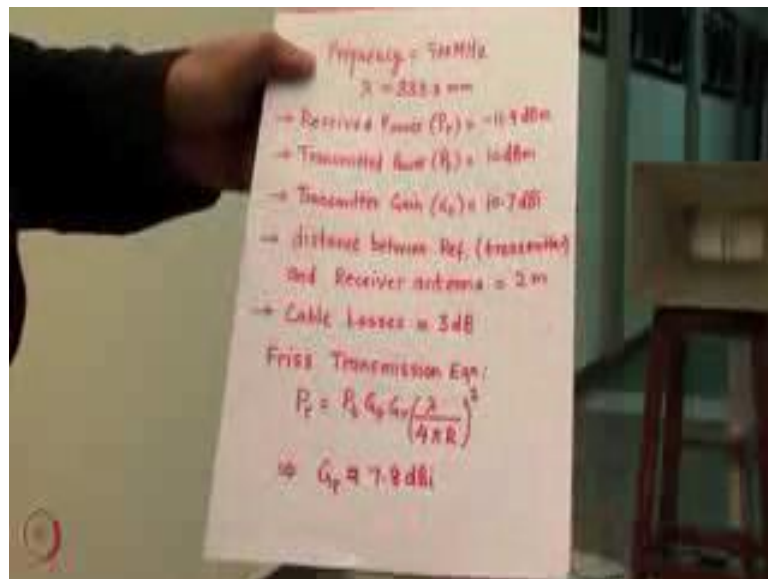 Frequency = 900MHz
λ = 333.3 mm
→ Received Power (Pr) = -11.9 dBm
→ Transmitted Power (Pt) = 10dBm
→ Transmitter Gain (Gt) = 10.7 dBi
→ distance between Ref. (transmitter)
and Receiver antenna = 2m
→ Cable Losses = 3dB
Friss Transmission Eqn:
Pr = Pt Gt Gr (λ/4πR)²
⇒ Gr = 7.8 dBi